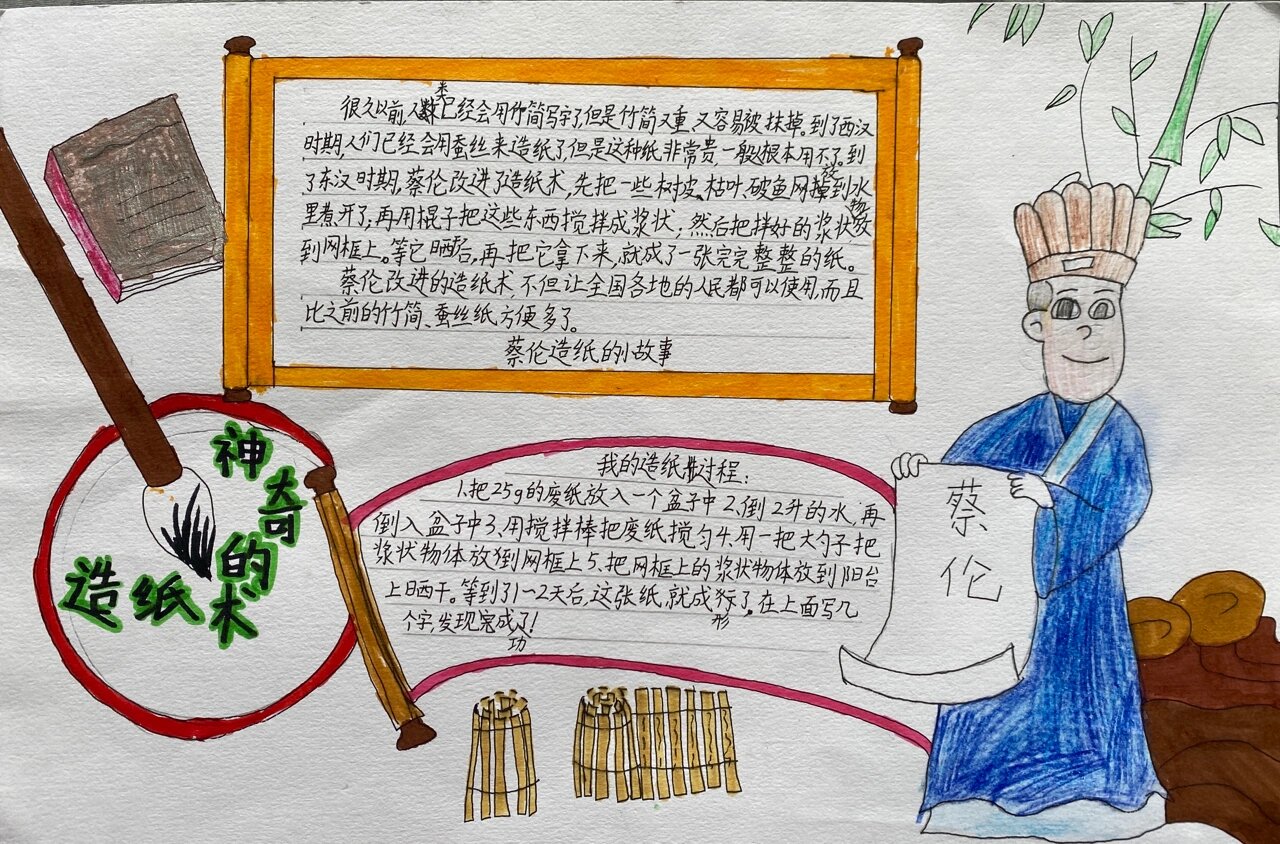 很久以前,人类已经会用竹简写字了,但是竹简又重、又容易被抹掉。到了西汉
时期,人们已经会用蚕丝来造纸了,但是这种纸非常贵,一般根本用不了。到
了东汉时期,蔡伦改进了造纸术,先把一些树皮、枯叶、破鱼网放到水
里煮开了,再用棍子把这些东西搅拌成浆状,然后把拌好的浆状物放
到网框上。等它晒干后,再把它拿下来,就成了一张完完整整的纸。
蔡伦改进的造纸术,不但让全国各地的人民都可以使用,而且
比之前的竹简、蚕丝纸方便多了。
蔡伦造纸的小故事
神奇的
造纸术
我的造纸过程:
1、把25g的废纸放入一个盆子中2、倒2升的水,再
倒入盆子中3、用搅拌棒把废纸搅匀4、用一把大勺子把
浆状物体放到网框上5、把网框上的浆状物体放到阳台
上晒干。等到了1~2天后,这张纸,就成形了。在上面写几
个字,发现完成功了!
蔡伦